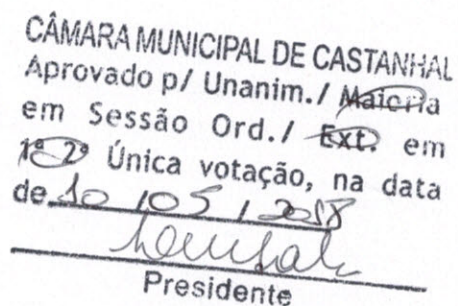 CÂMARA MUNICIPAL DE CASTANHAL
Aprovado p/ Unanim./ Maioria
em Sessão Ord./ Ext. em
1ª 2ª Única votação, na data
de 10 / 05 / 2018
Presidente